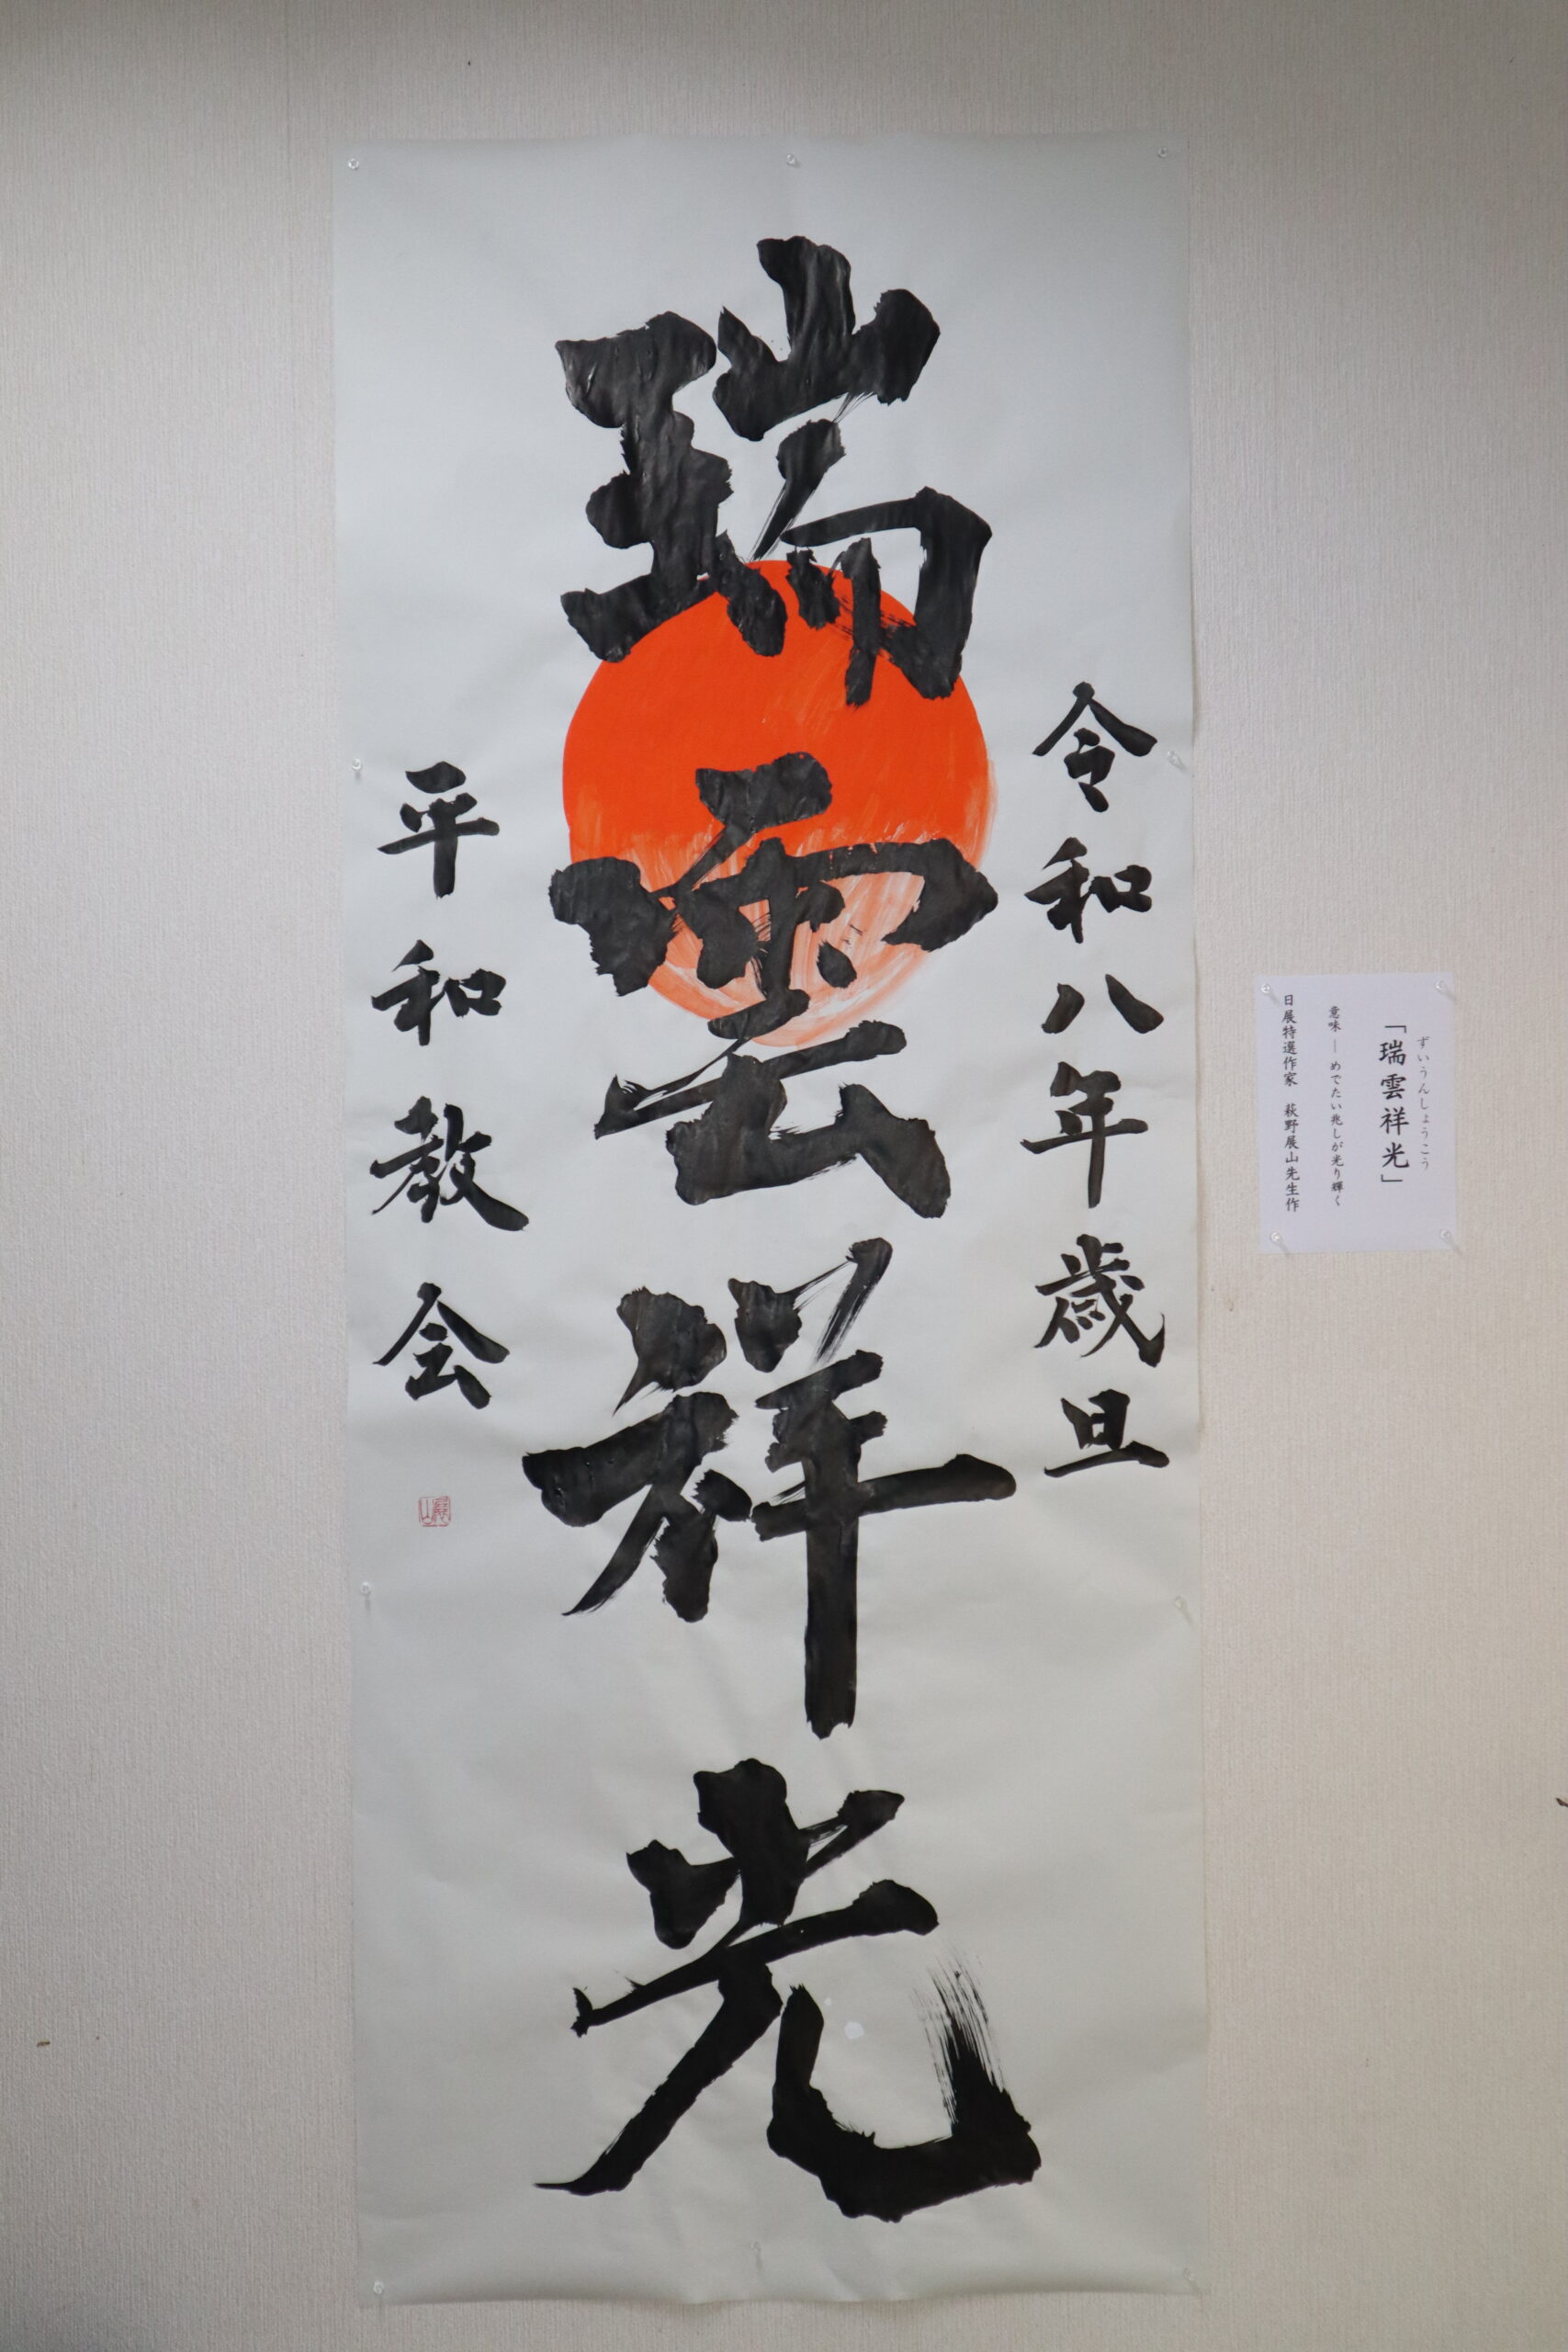 令和八年歳旦
瑞雲祥光
平和教会
展山
ずいうんしょうこう
「瑞雲祥光」
意味 ― めでたい兆しが光り輝く
日展特選作家 萩野展山先生作